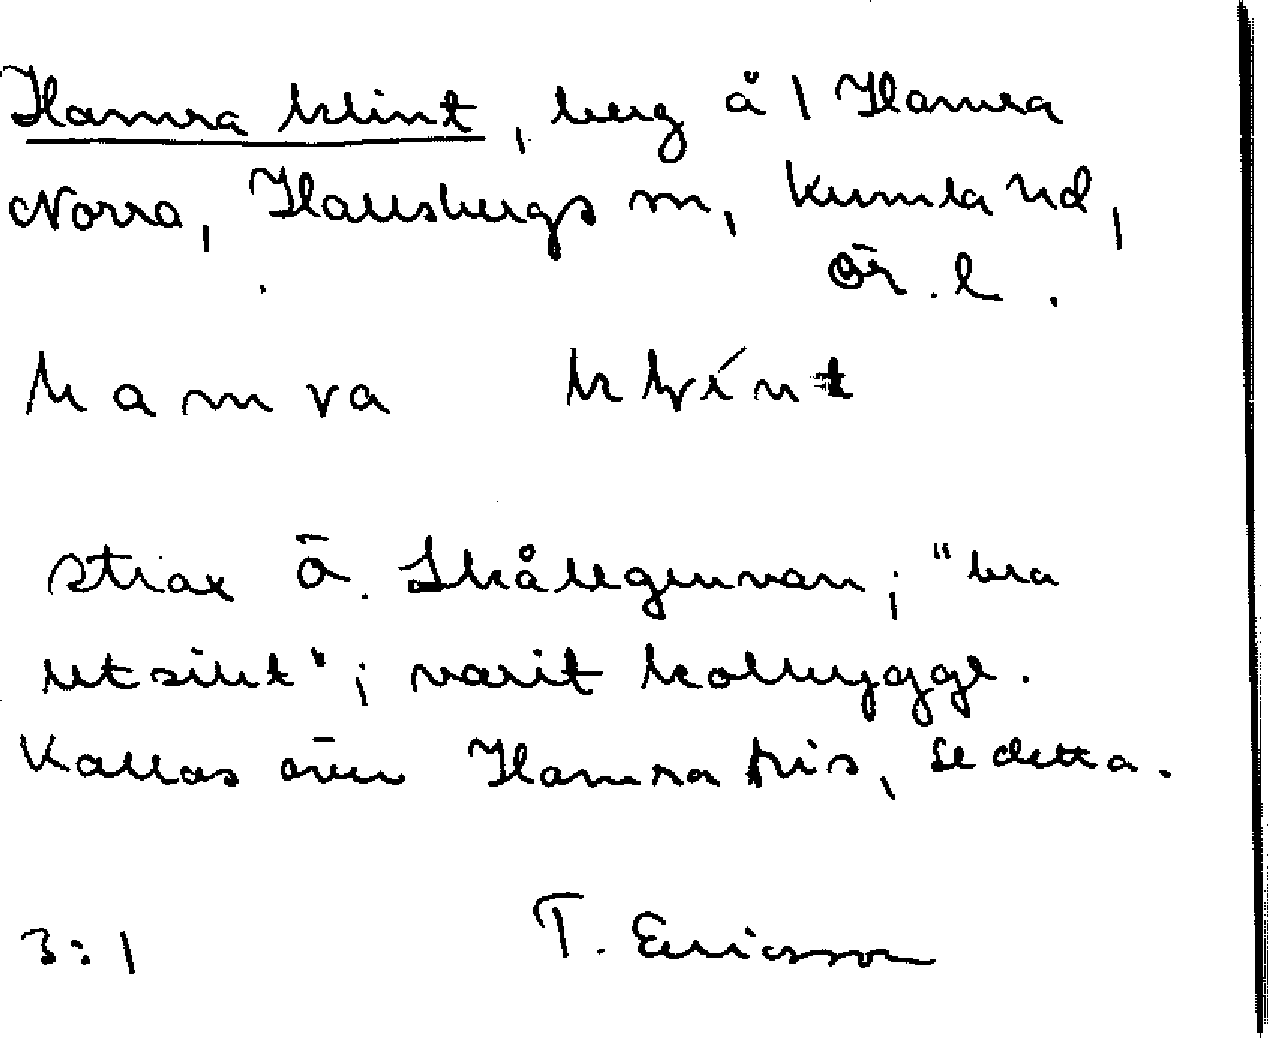 Hamra klint, berg å 1 Hamra
Norra, Hallsbergs sn, Kumla hd,
Ör. l.
hamra klínt
strax Ö. Skållgruvan; "bra
utsikt"; varit kolbygge.
Kallas även Hamra ris, se detta.
3:1 T. Ericsson